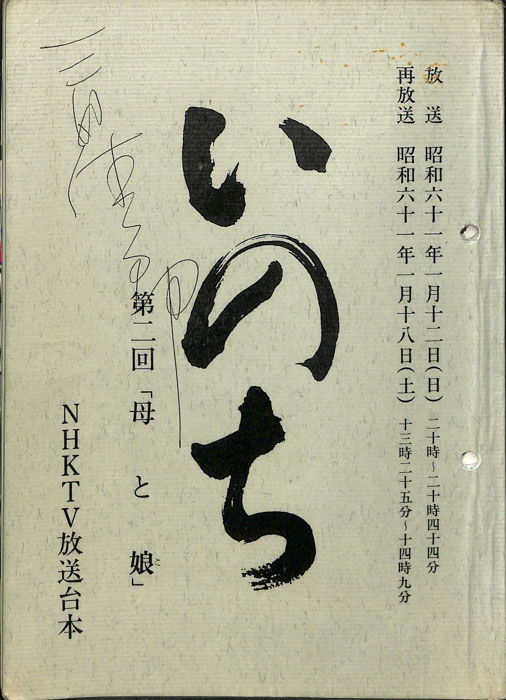 放送 昭和六十一年一月十二日(日) 二十時~二十時四十四分
再放送 昭和六十一年一月十八日(土) 十三時二十五分~十四時九分
いのち
第二回「母と娘」
NHKTV放送台本